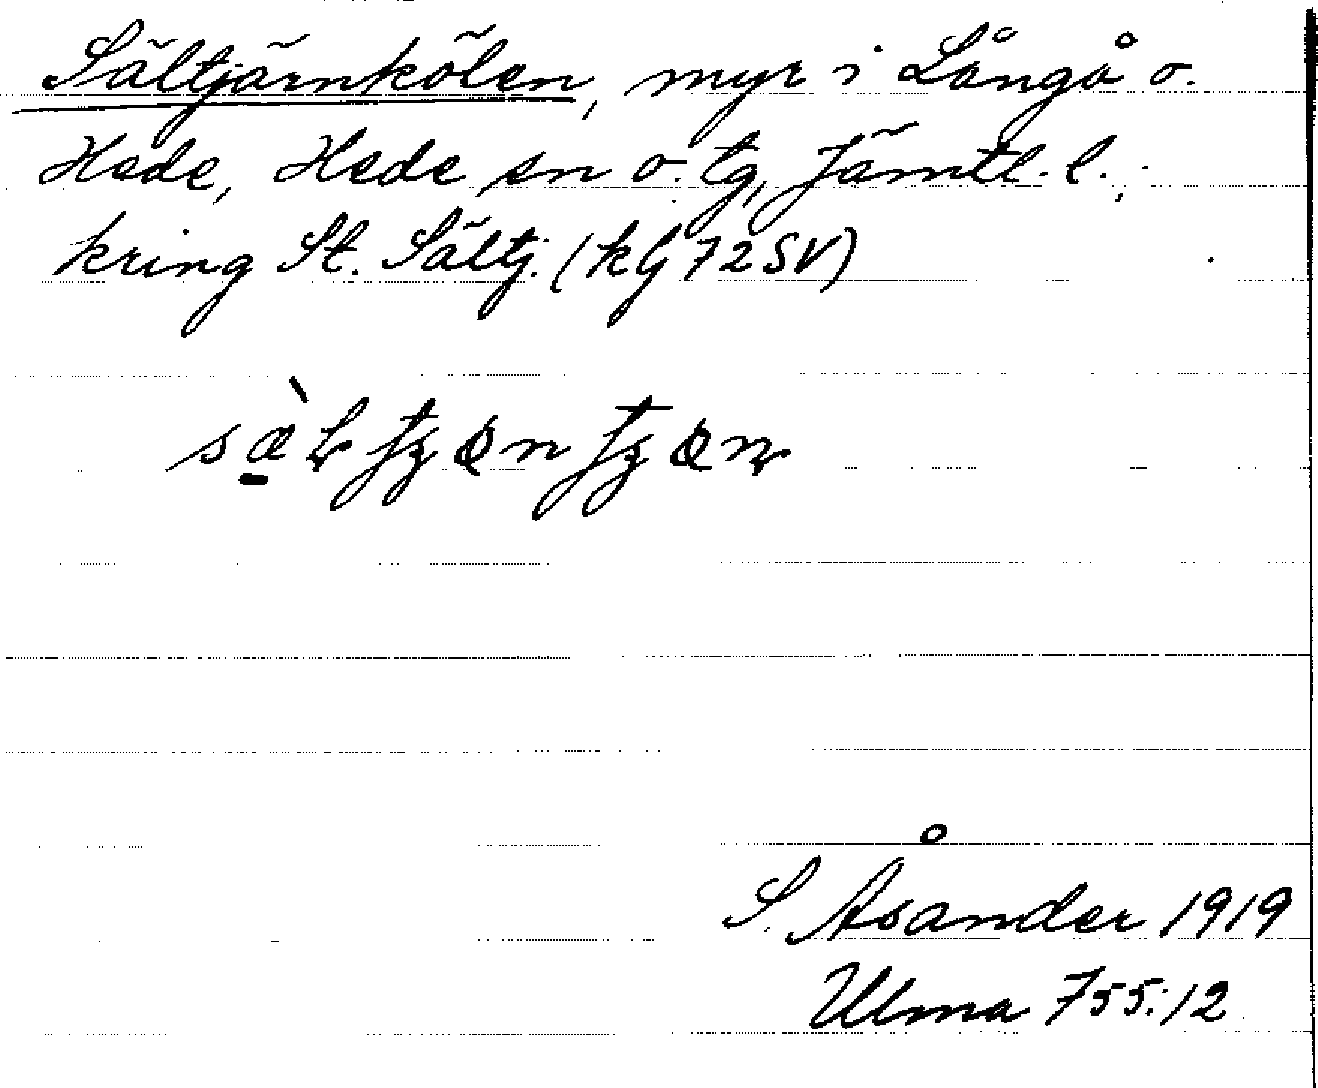 Sältjärnkölen, myr i Långå o.
Hede, Hede sn o. tg, Jämtl. l.,
kring St. Sältj. (kbl 72 SV)
S. Åsander 1919
Ulma 755:12